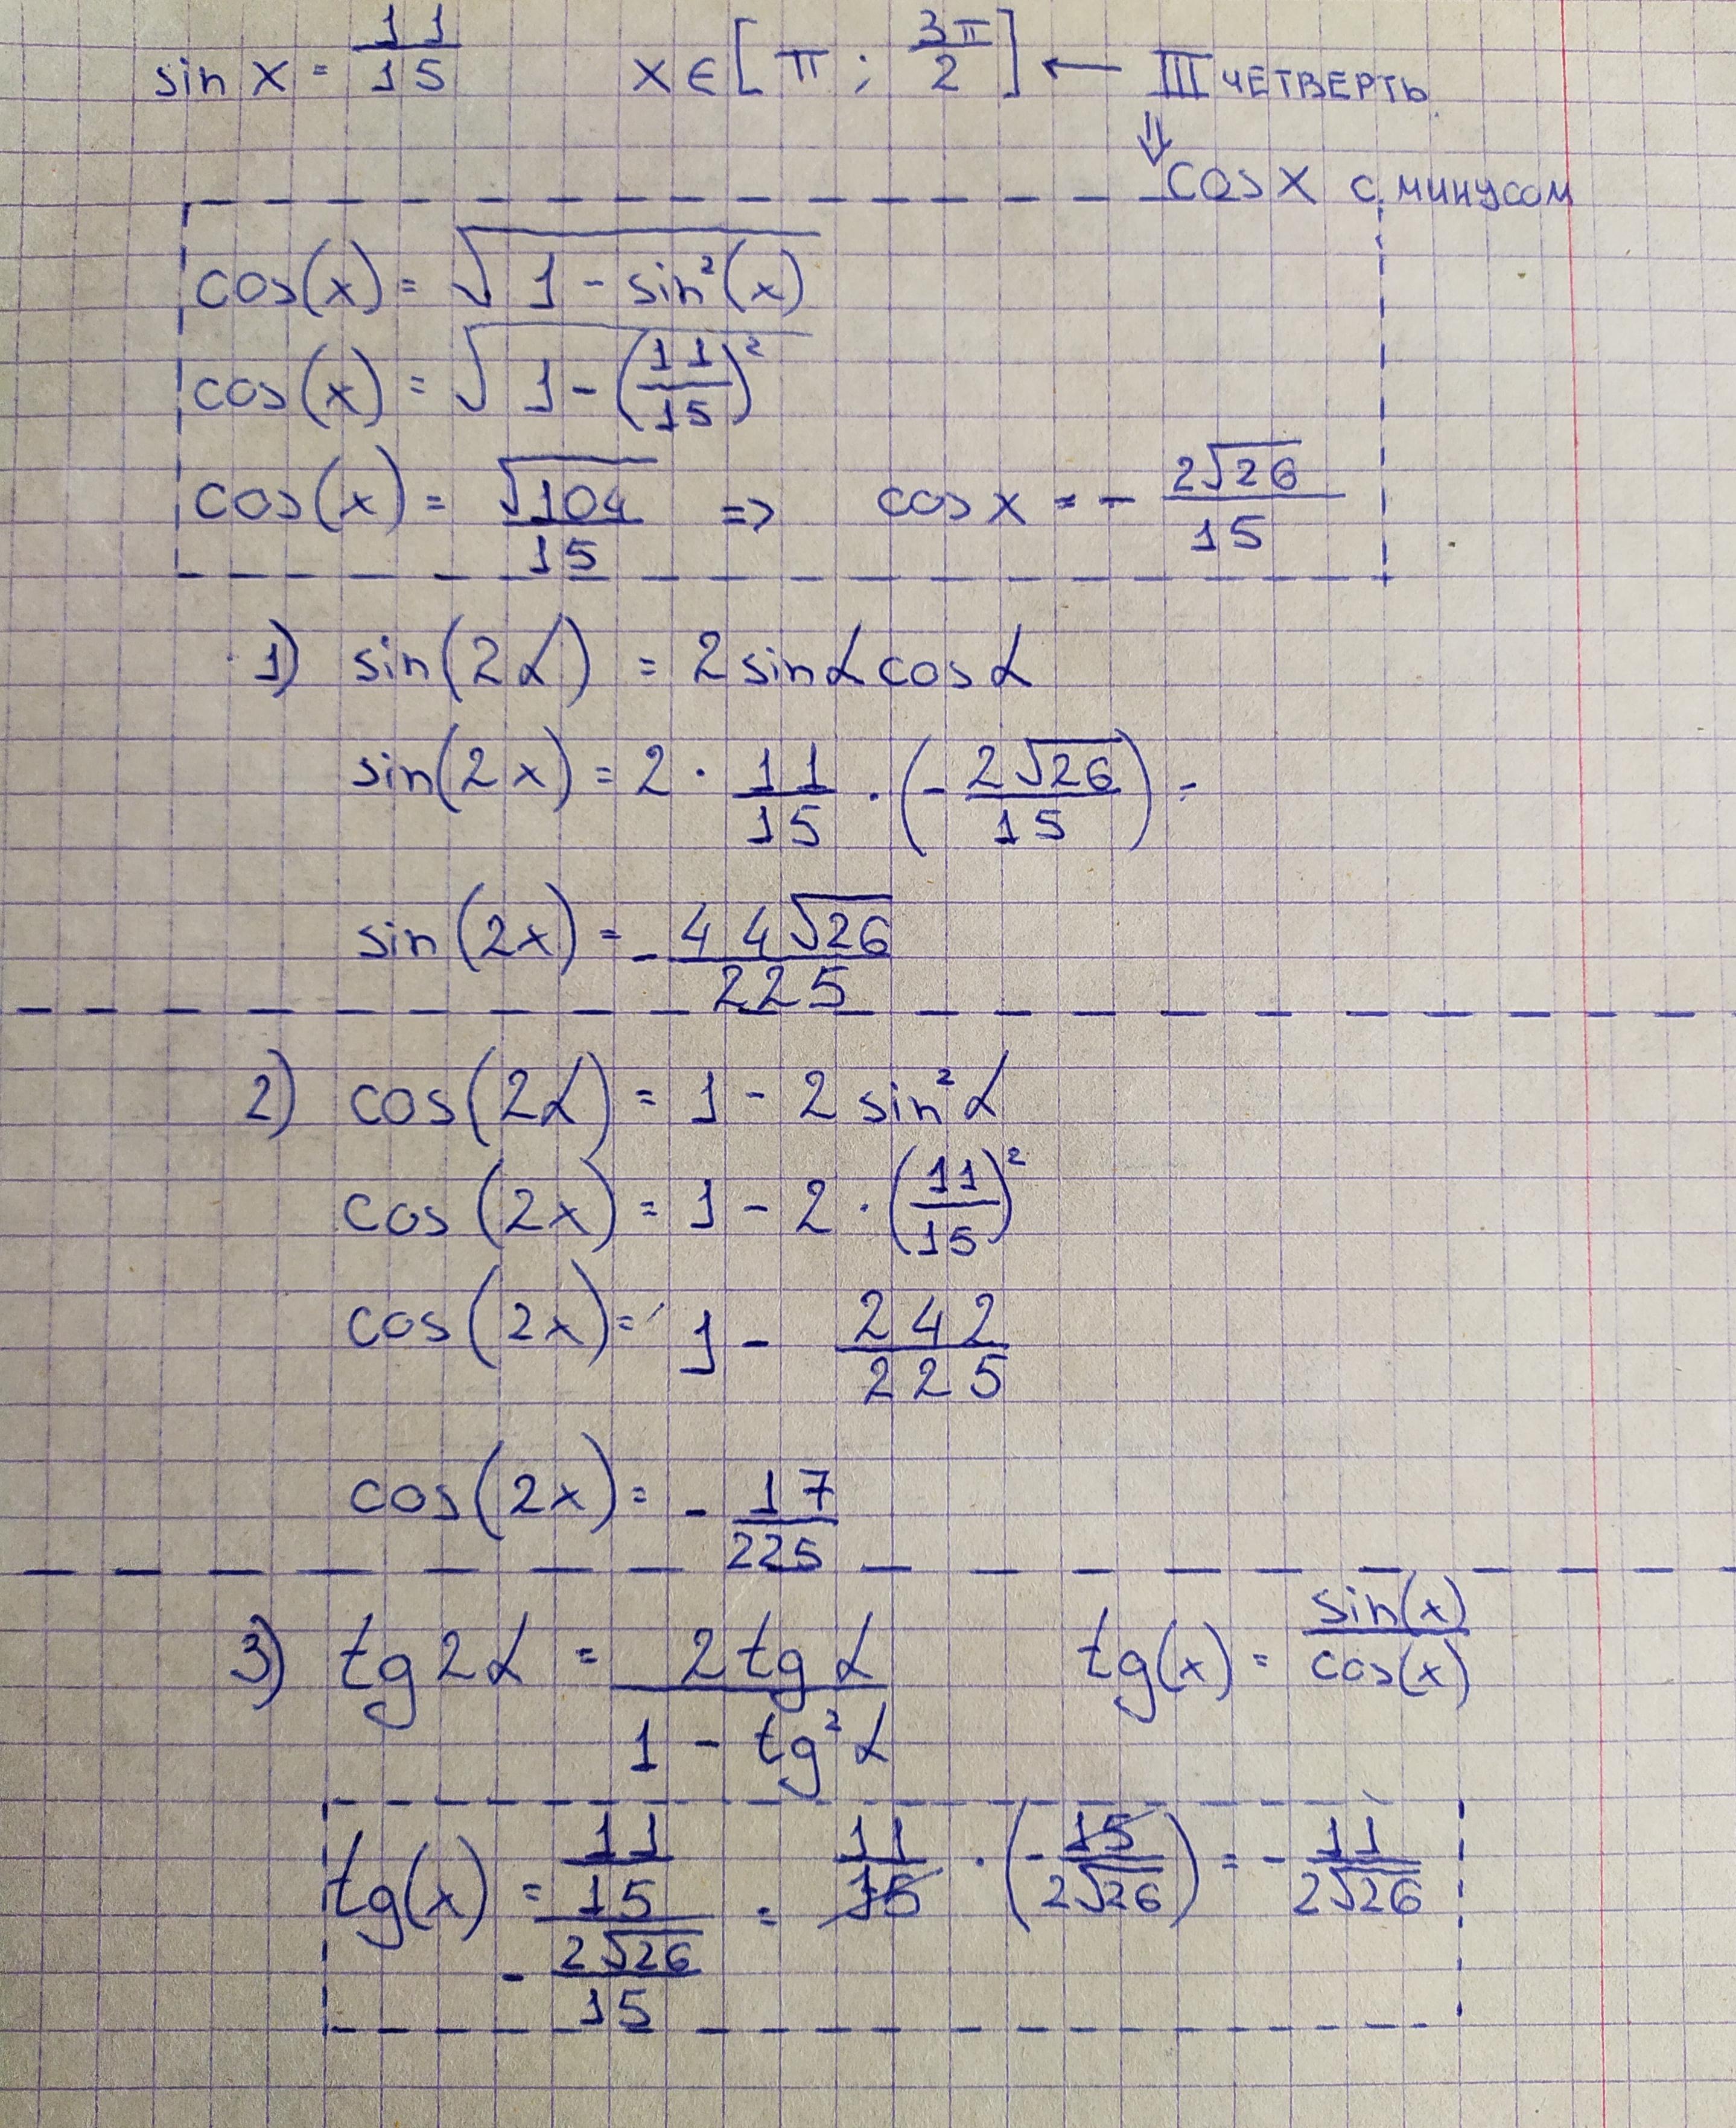 sin x = 11/15 x ∈ [π ; 3π/2] ← III ЧЕТВЕРТЬ
⇓
cos x с минусом
cos(x) = √(1 - sin²(x))
cos(x) = √(1 - (11/15)²)
cos(x) = √104/15 => cos x = - 2√26/15
1) sin(2α) = 2 sin α cos α
sin(2x) = 2 · 11/15 · (- 2√26/15) =
sin(2x) = - 44√26/225
2) cos(2α) = 1 - 2 sin²α
cos(2x) = 1 - 2 · (11/15)²
cos(2x) = 1 - 242/225
cos(2x) = - 17/225
3) tg 2α = 2 tg α/(1 - tg²α) tg(x) = sin(x)/cos(x)
tg(x) = (11/15)/(- 2√26/15) = 11/15 · (- 15/2√26) = - 11/2√26